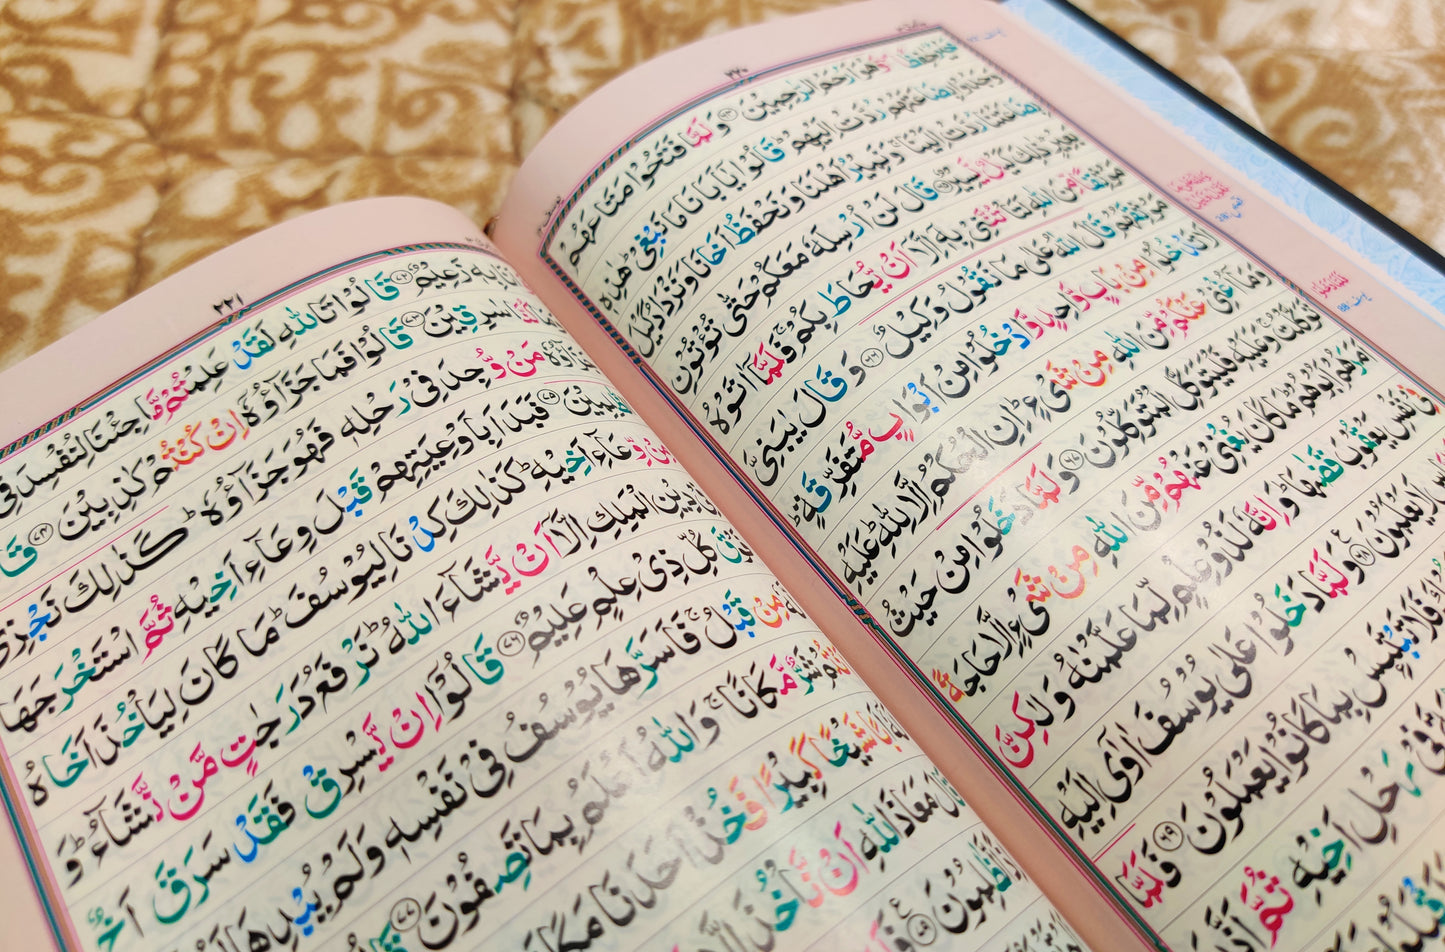 ٢٢٠
خَيْرٌ حٰفِظًا وَّهُوَ اَرْحَمُ الرّٰحِمِيْنَ ﴿٦٤﴾ وَلَمَّا فَتَحُوْا مَتَاعَهُمْ
وَجَدُوْا بِضَاعَتَهُمْ رُدَّتْ اِلَيْهِمْ ؕ قَالُوْا يٰۤاَبَانَا مَا نَبْغِيْ ؕ هٰذِهٖ
بِضَاعَتُنَا رُدَّتْ اِلَيْنَا ۚ وَنَمِيْرُ اَهْلَنَا وَنَحْفَظُ اَخَانَا وَنَزْدَادُ كَيْلَ
بَعِيْرٍ ؕ ذٰلِكَ كَيْلٌ يَّسِيْرٌ ﴿٦٥﴾ قَالَ لَنْ اُرْسِلَهٗ مَعَكُمْ حَتّٰى تُؤْتُوْنِ
مَوْثِقًا مِّنَ اللّٰهِ لَتَاْتُنَّنِيْ بِهٖۤ اِلَّاۤ اَنْ يُّحَاطَ بِكُمْ ۚ فَلَمَّاۤ اٰتَوْهُ
مَوْثِقَهُمْ قَالَ اللّٰهُ عَلٰى مَا نَقُوْلُ وَكِيْلٌ ﴿٦٦﴾ وَقَالَ يٰبَنِيَّ
لَا تَدْخُلُوْا مِنْۢ بَابٍ وَّاحِدٍ وَّادْخُلُوْا مِنْ اَبْوَابٍ مُّتَفَرِّقَةٍ ؕ
وَمَاۤ اُغْنِيْ عَنْكُمْ مِّنَ اللّٰهِ مِنْ شَيْءٍ ؕ اِنِ الْحُكْمُ اِلَّا لِلّٰهِ ؕ عَلَيْهِ
تَوَكَّلْتُ ۚ وَعَلَيْهِ فَلْيَتَوَكَّلِ الْمُتَوَكِّلُوْنَ ﴿٦٧﴾ وَلَمَّا دَخَلُوْا مِنْ حَيْثُ
اَمَرَهُمْ اَبُوْهُمْ ؕ مَا كَانَ يُغْنِيْ عَنْهُمْ مِّنَ اللّٰهِ مِنْ شَيْءٍ اِلَّا حَاجَةً
فِيْ نَفْسِ يَعْقُوْبَ قَضٰىهَا ؕ وَاِنَّهٗ لَذُوْ عِلْمٍ لِّمَا عَلَّمْنٰهُ وَلٰكِنَّ
لَا يَعْلَمُوْنَ ﴿٦٨﴾ وَلَمَّا دَخَلُوْا عَلٰى يُوْسُفَ اٰوٰۤى اِلَيْهِ
فَلَا تَبْتَىِٕسْ بِمَا كَانُوْا يَعْمَلُوْنَ ﴿٦٩﴾ فَلَمَّا
فِيْ رَحْلِ اَخِيْهِ ثُمَّ اَذَّنَ
٢٢١
وَّاَنَا بِهٖ زَعِيْمٌ ﴿٧٢﴾ قَالُوْا تَاللّٰهِ لَقَدْ عَلِمْتُمْ مَّا جِئْنَا لِنُفْسِدَ فِي
كُنَّا سٰرِقِيْنَ ﴿٧٣﴾ قَالُوْا فَمَا جَزَآؤُهٗۤ اِنْ كُنْتُمْ كٰذِبِيْنَ ﴿٧٤﴾ قَا
جَزَآؤُهٗ مَنْ وُّجِدَ فِيْ رَحْلِهٖ فَهُوَ جَزَآؤُهٗ ؕ كَذٰلِكَ نَجْزِي
الظّٰلِمِيْنَ ﴿٧٥﴾ فَبَدَاَ بِاَوْعِيَتِهِمْ قَبْلَ وِعَآءِ اَخِيْهِ ثُمَّ اسْتَخْرَجَهَا
مِنْ وِّعَآءِ اَخِيْهِ ؕ كَذٰلِكَ كِدْنَا لِيُوْسُفَ ؕ مَا كَانَ لِيَاْخُذَ اَخَاهُ
فِيْ دِيْنِ الْمَلِكِ اِلَّاۤ اَنْ يَّشَآءَ اللّٰهُ ؕ نَرْفَعُ دَرَجٰتٍ مَّنْ نَّشَآءُ ؕ وَ
فَوْقَ كُلِّ ذِيْ عِلْمٍ عَلِيْمٌ ﴿٧٦﴾ قَالُوْۤا اِنْ يَّسْرِقْ فَقَدْ سَرَقَ اَخٌ
لَّهٗ مِنْ قَبْلُ ۚ فَاَسَرَّهَا يُوْسُفُ فِيْ نَفْسِهٖ وَلَمْ يُبْدِهَا لَهُمْ
اَنْتُمْ شَرٌّ مَّكَانًا ۚ وَاللّٰهُ اَعْلَمُ بِمَا تَصِفُوْنَ ﴿٧٧﴾ قَا
اَبًا شَيْخًا كَبِيْرًا فَخُذْ اَحَدَنَا مَكَانَهٗ
قَالَ مَعَاذَ اللّٰهِ اَنْ نَّاْخُذَ اِلَّا
لَّظٰلِمُوْنَ ﴿٧٩﴾